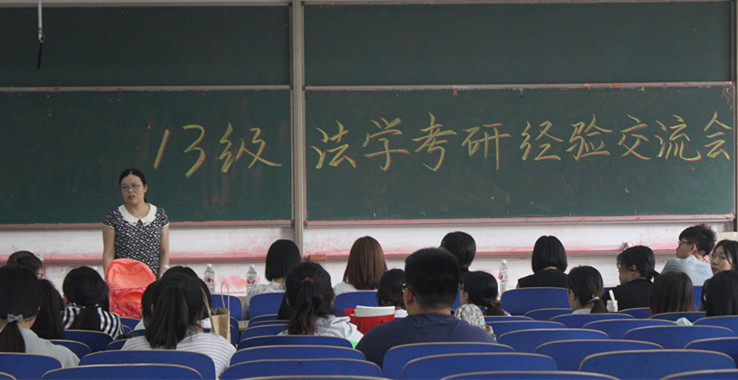 13级 法学考研经验交流会